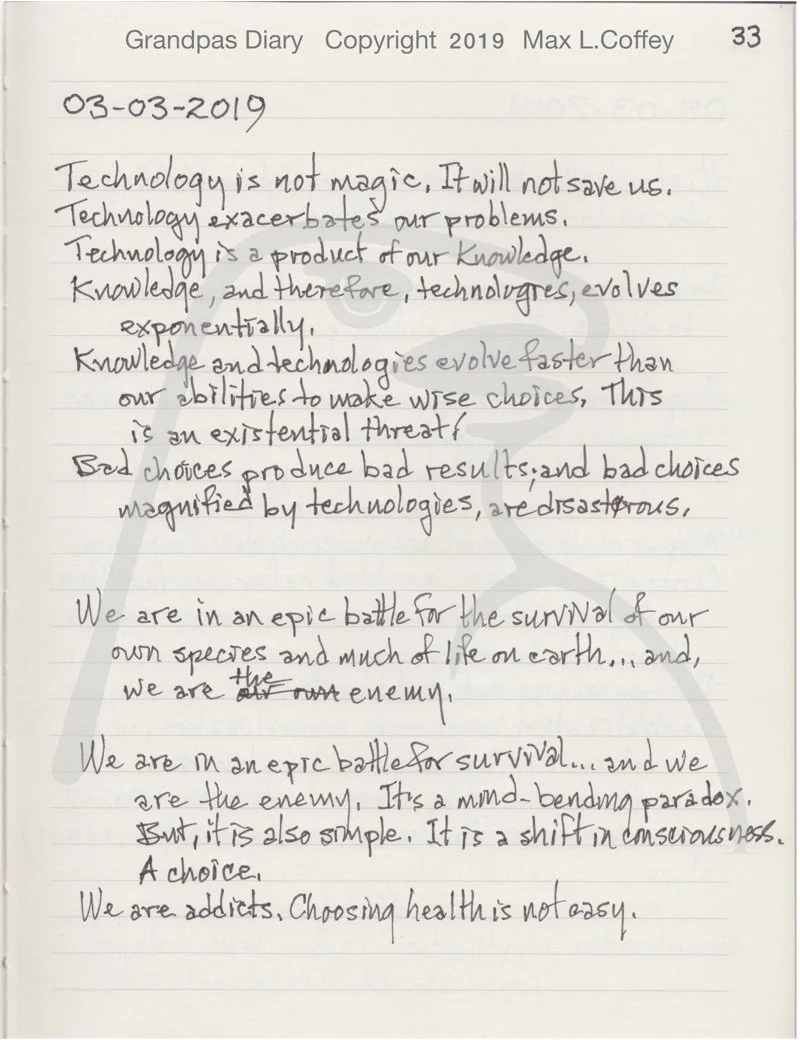 Grandpas Diary Copyright 2019 Max L.Coffey 33
03-03-2019
Technology is not magic. It will not save us.
Technology exacerbates our problems.
Technology is a product of our Knowledge.
Knowledge, and therefore, technologies, evolves
exponentially.
Knowledge and technologies evolve faster than
our abilities to make wise choices. This
is an existential threat!
Bad choices produce bad results; and bad choices
magnified by technologies, are disastrous.
We are in an epic battle for the survival of our
own species and much of life on earth... and,
we are the our own enemy.
We are in an epic battle for survival... and we
are the enemy. It's a mind-bending paradox.
But, it is also simple. It is a shift in consciousness.
A choice.
We are addicts. Choosing health is not easy.